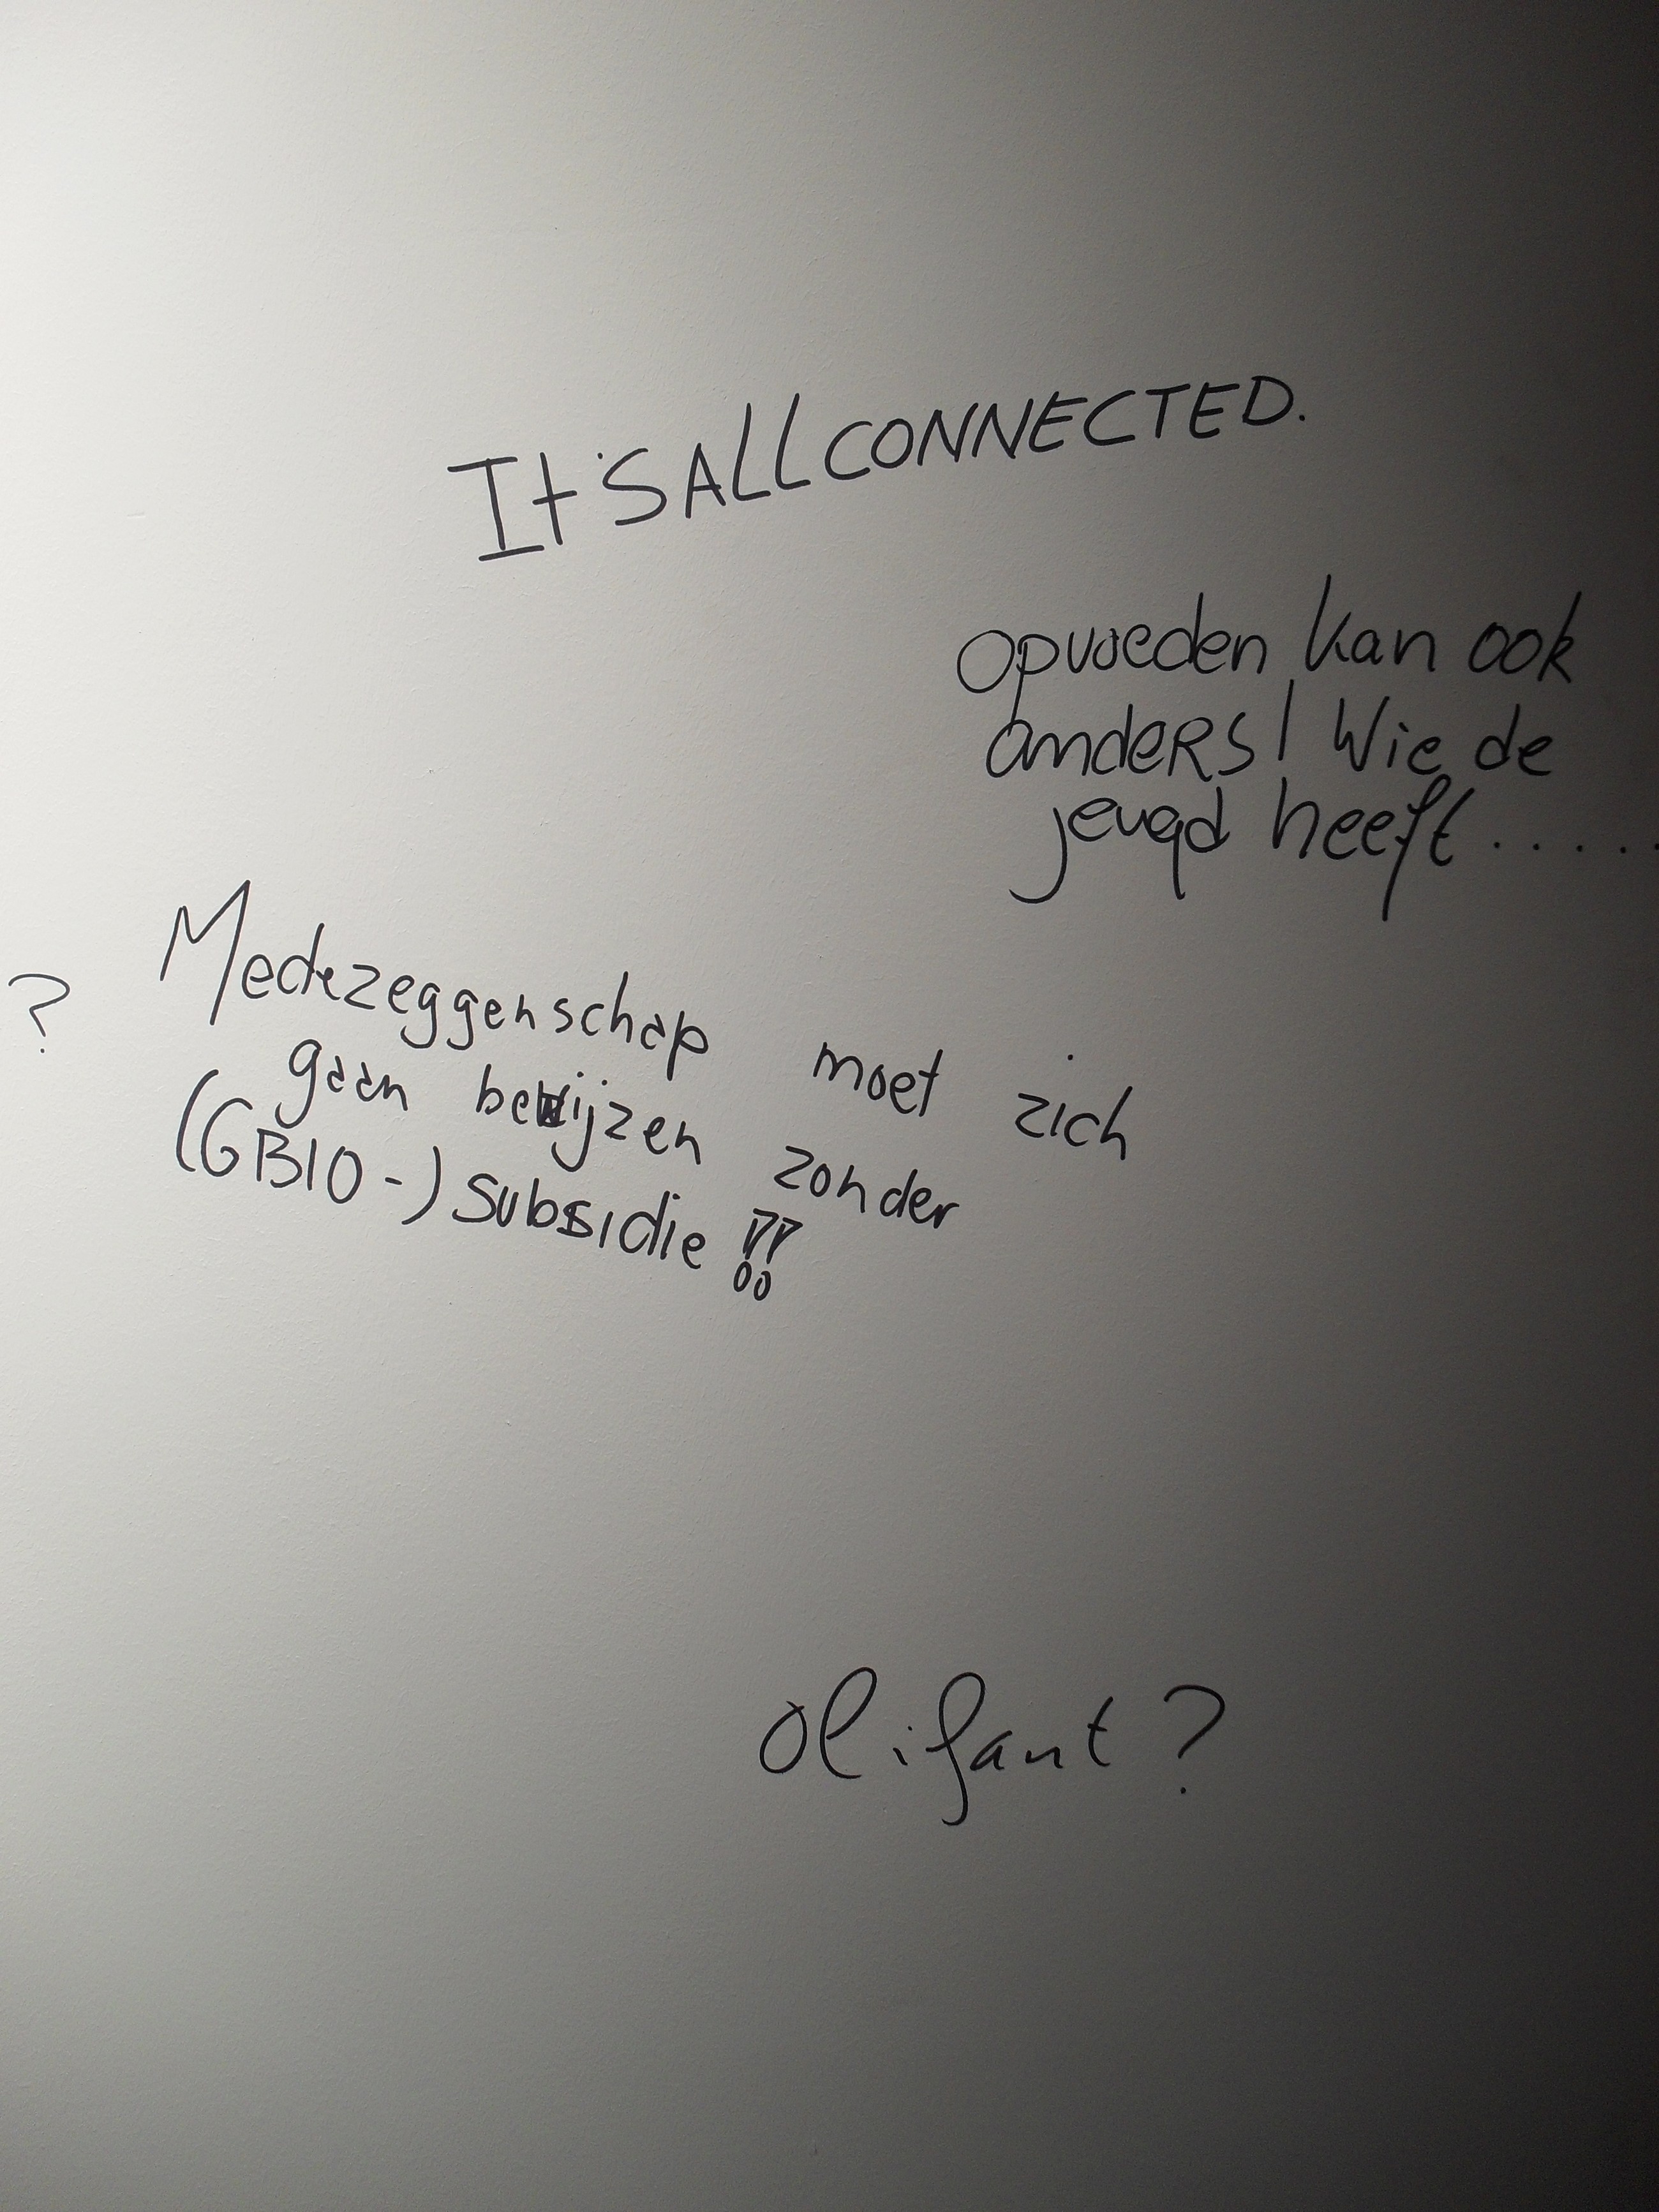 It'S ALL CONNECTED.
opvoeden kan ook
anders! Wie de
jeugd heeft.....
?
Medezeggenschap moet zich
gaan bewijzen zonder
(GBIO-) subsidie !!
Olifant?